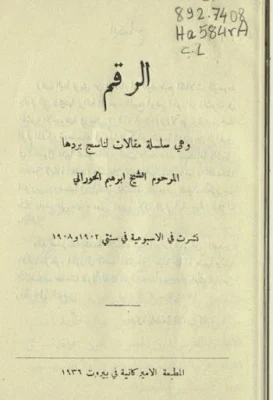 892.7408
Ha584rA
c.1
الرقم
وهي سلسلة مقالات لناسج بردها
المرحوم الشيخ ابرهيم الحوراني
نشرت في الاسبوعية في سنتي ١٩٠٢ و ١٩٠٨
المطبعة الاميركانية في بيروت ١٩٣٦